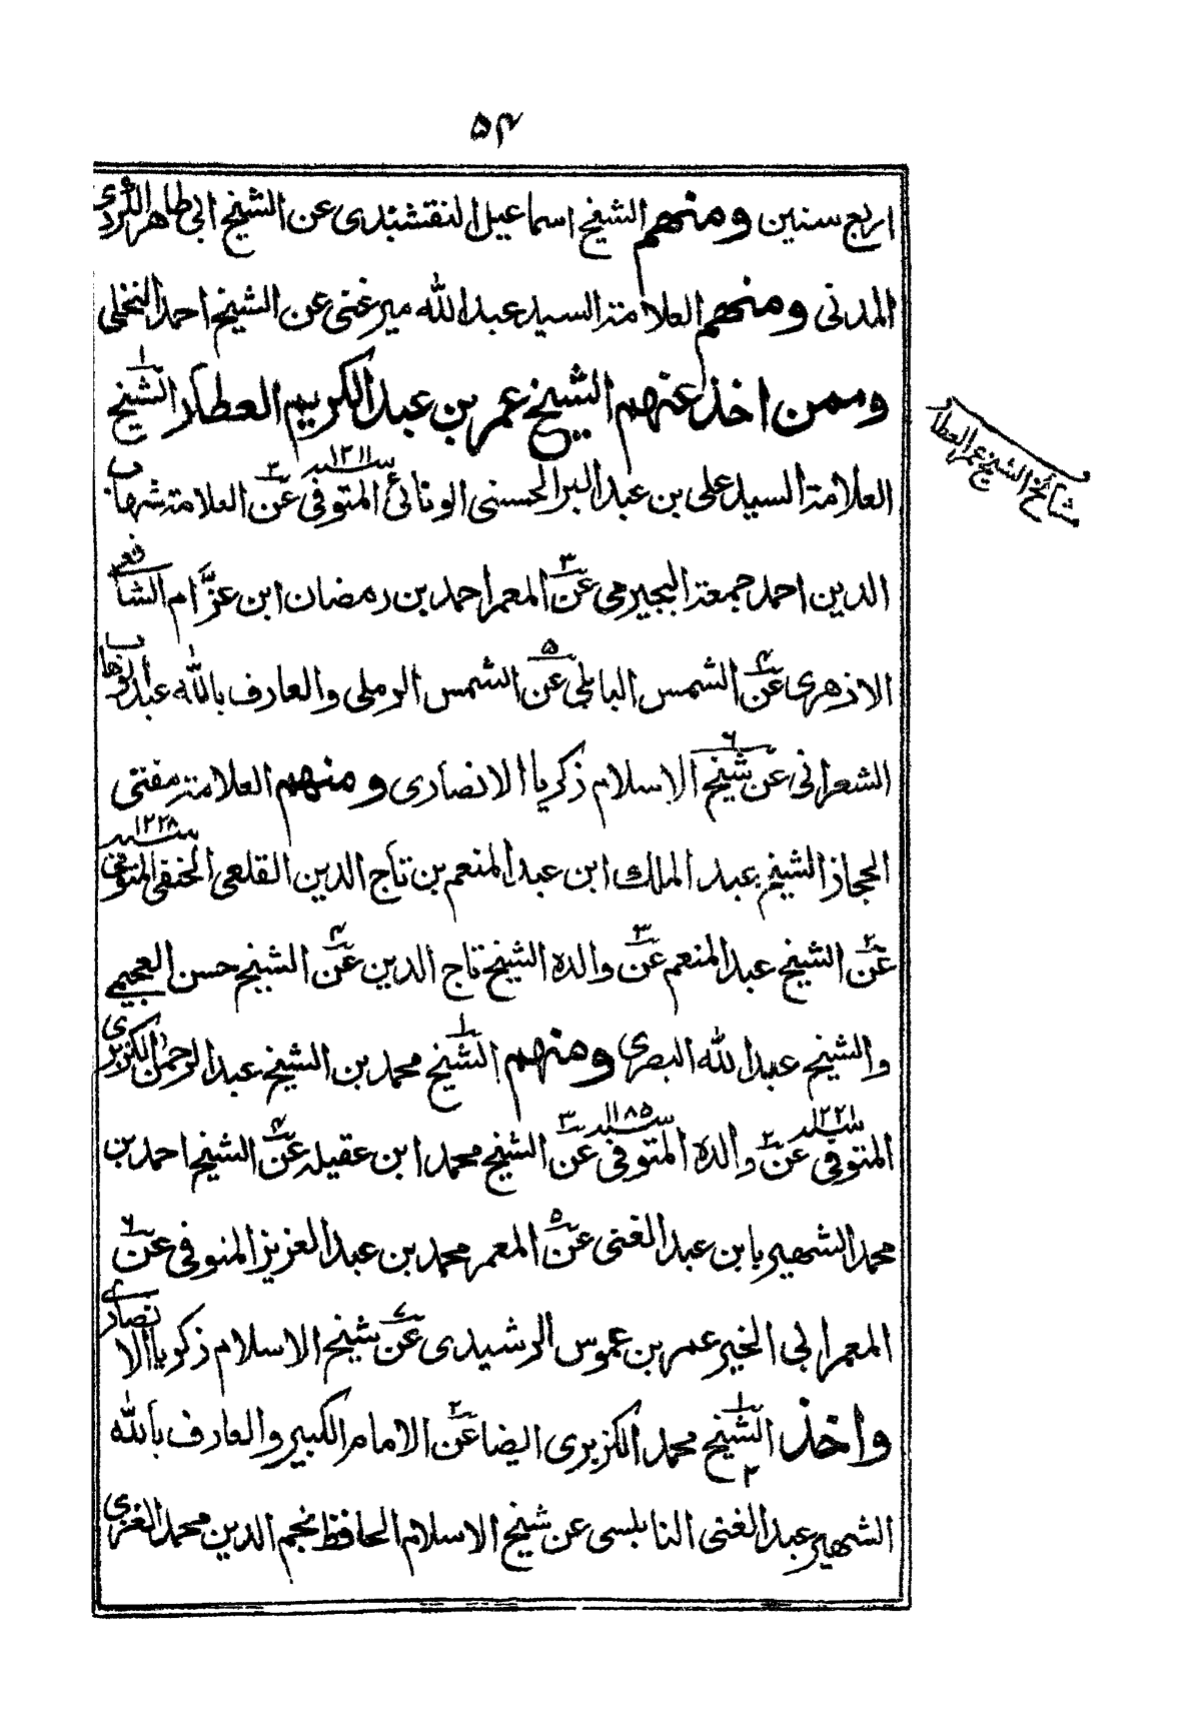 ۵۴
اربع سنين ومنهم الشيخ اسماعيل النقشبندى عن الشيخ ابى طاهر الكردى
المدنى ومنهم العلامة السيد عبد الله ميرغنى عن الشيخ احمد النخلى
وممن اخذ عنهم الشيخ عمر بن عبد الكريم العطار الشيخ ١
مشائخ الشيخ عمر العطار
العلامة السيد على بن عبد البر الحسنى الونائى المتوفى سنة ١٢١١ عن ٢ العلامة شهاب
الدين احمد جمعة البجيرمى عن ٣ المعمر احمد بن رمضان ابن عزّام الشافعى
الازهرى عن ۴ الشمس البابلى عن ۵ الشمس الرملى والعارف بالله عبد الوهاب
الشعرانى عن شيخ ٦ الاسلام زكريا الانصارى ومنهم العلامة مفتى
الحجاز الشيخ عبد الملك ابن عبد المنعم بن تاج الدين القلعى الحنفى المتوفى سنة ١٢٢٨
عن ٢ الشيخ عبد المنعم عن ٣ والده الشيخ تاج الدين عن ۴ الشيخ حسن العجيمى
والشيخ عبد الله البصرى ومنهم الشيخ ١ محمد بن الشيخ عبد الرحمٰن الكزبرى
المتوفى سنة ١٢٢١ عن ٢ والده المتوفى سنة ١١٨۵ عن ٣ الشيخ محمد ابن عقيله عن ۴ الشيخ احمد بن
محمد الشهير بابن عبد الغنى عن ۵ المعمر محمد بن عبد العزيز المنوفى عن ٦
المعمر ابى الخير عمر بن عموس الرشيدى عن ٧ شيخ الاسلام زكريا الانصارى
واخذ الشيخ ١ محمد الكزبرى ايضا عن ٢ الامام الكبير والعارف بالله
الشهير عبد الغنى النابلسى عن شيخ ٣ الاسلام الحافظ نجم الدين محمد الغزى